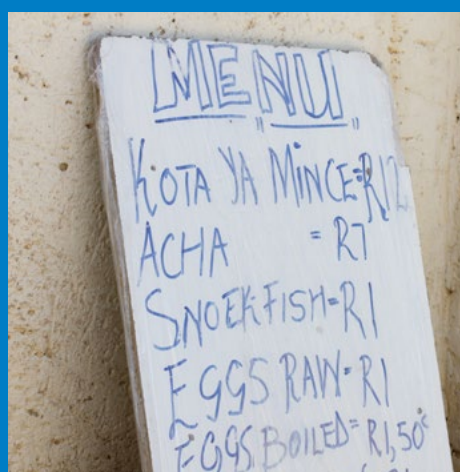 MENU
KOTA YA MINCE=R12
ACHA = R7
SNOEK FISH=R1
EGGS RAW=R1
EGGS BOILED=R1,50c